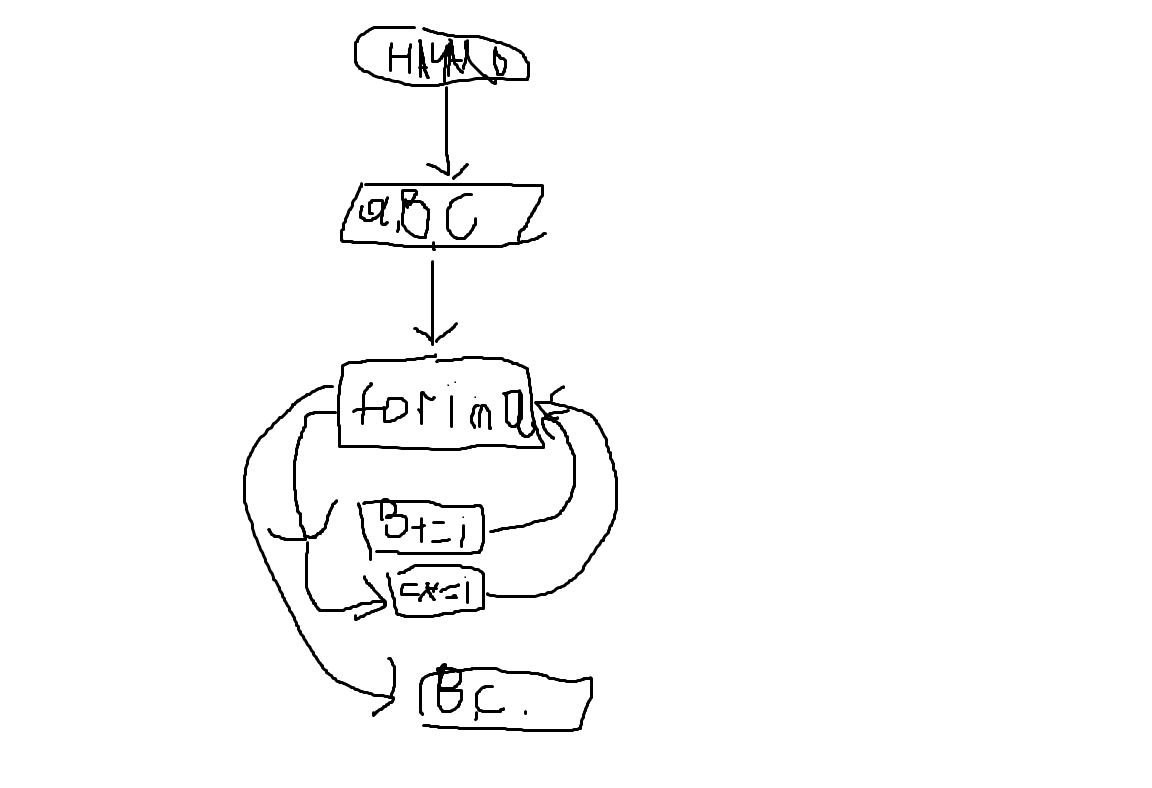 НАЧАЛО
a,B C
for i in a
B+=i
C*=i
B,C.